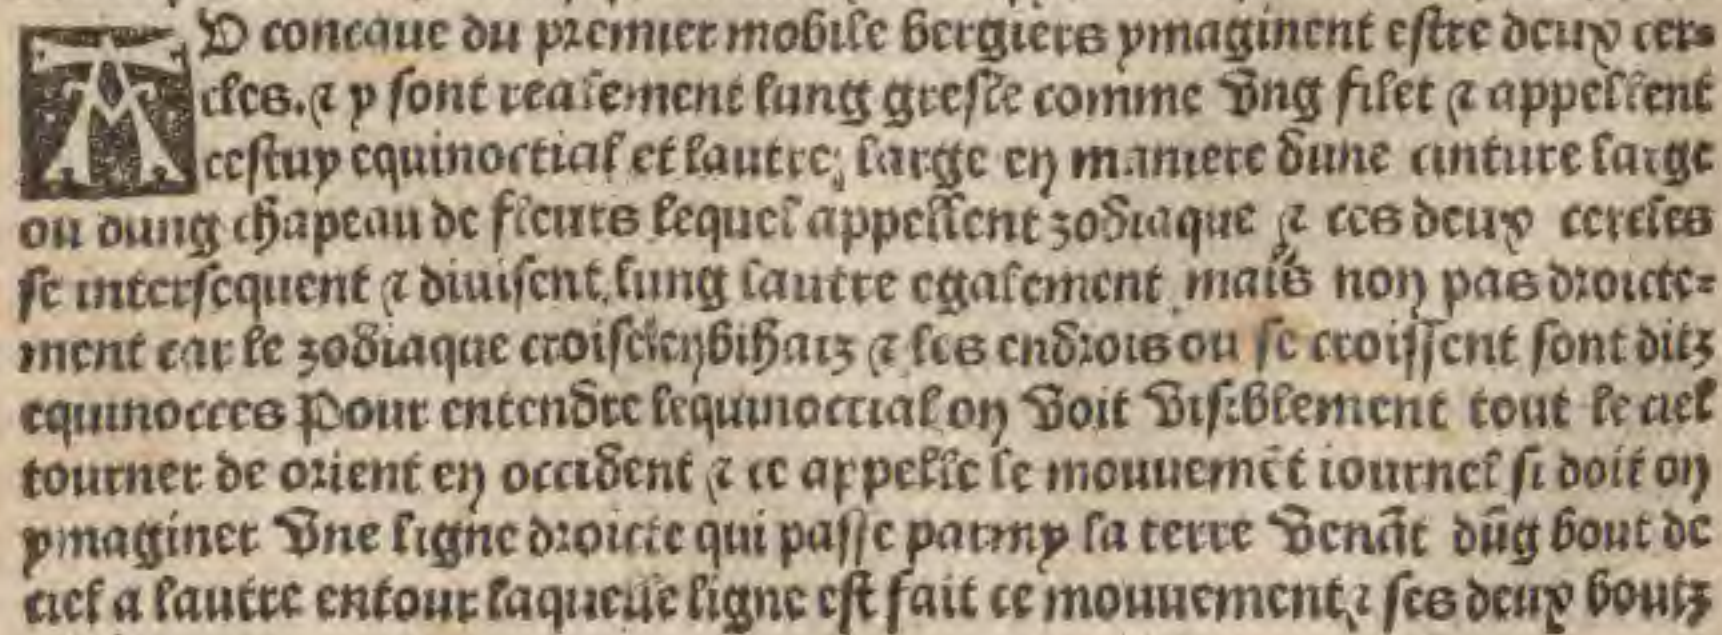 AD concaue du premier mobile bergiers ymaginent estre deux cer-
cles. ⁊ y sont realement lung gresle comme vng filet ⁊ appellent
cestuy equinoctial et lautre, large en maniere dune cinture large
ou dung chapeau de fleurs lequel appellent zodiaque ⁊ ces deux cercles
se intersequent ⁊ diuisent lung lautre egalement mais non pas droicte-
ment car le zodiaque croise en bihaiz ⁊ les endrois ou se croissent sont ditz
equinocces Pour entendre lequinoctial on voit visiblement tout le ciel
tourner de orient en occident ⁊ ce appelle le mouuemẽt iournel si doit on
ymaginer vne ligne droicte qui passe parmy la terre venãt dũg bout de
ciel a lautre entour laquelle ligne est fait ce mouuement ⁊ ses deux boutz